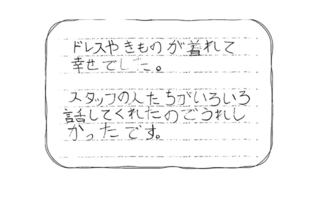 ドレスやきものが着れて
幸せでした。
スタッフの人たちがいろいろ
話してくれたのでうれし
かったです。